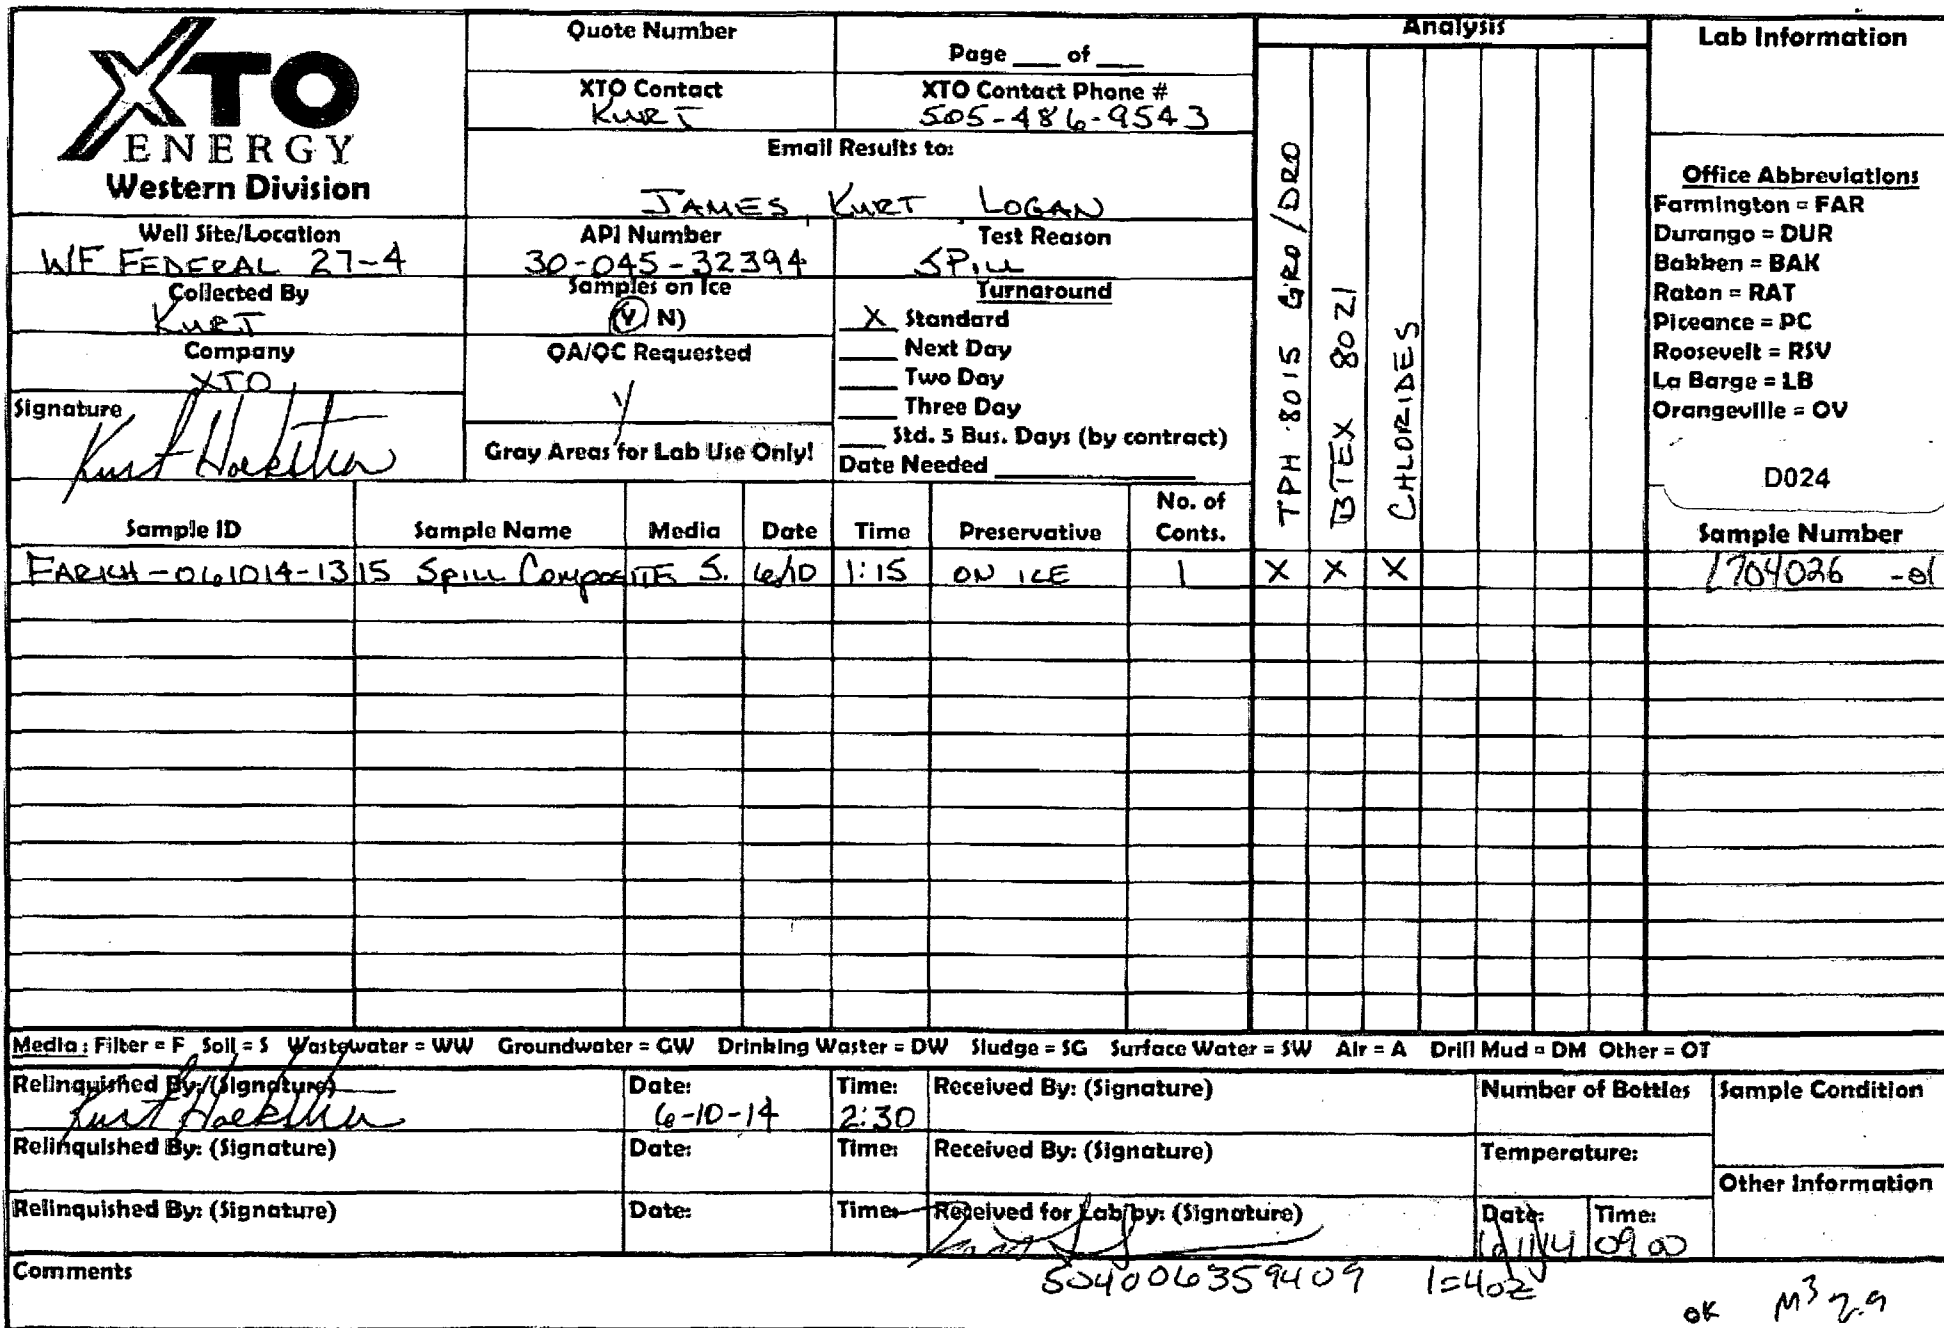 XTO
ENERGY
Western Division
Quote Number
Page ___ of ___
XTO Contact
KURT
XTO Contact Phone #
505-486-9543
Email Results to:
JAMES, KURT, LOGAN
Well Site/Location
WF FEDERAL 27-4
API Number
30-045-32394
Test Reason
SPILL
Collected By
KURT
Samples on Ice
(Y N)
Turnaround
X Standard
___ Next Day
___ Two Day
___ Three Day
___ Std. 5 Bus. Days (by contract)
Date Needed ___
Company
XTO
QA/QC Requested
Signature
Kurt Hoekstra
Gray Areas for Lab Use Only!
Analysis
TPH 8015 GRO/DRO
BTEX 8021
CHLORIDES
Lab Information
Office Abbreviations
Farmington = FAR
Durango = DUR
Bakken = BAK
Raton = RAT
Piceance = PC
Roosevelt = RSV
La Barge = LB
Orangeville = OV
D024
Sample ID Sample Name Media Date Time Preservative No. of Conts. Sample Number
FARKH-061014-1315 SPILL COMPOSITE S. 6/10 1:15 ON ICE 1 X X X 1704026 -01
Media : Filter = F Soil = S Wastewater = WW Groundwater = GW Drinking Waster = DW Sludge = SG Surface Water = SW Air = A Drill Mud = DM Other = OT
Relinquished By: (Signature) Date: Time: Received By: (Signature) Number of Bottles Sample Condition
Kurt Hoekstra 6-10-14 2:30
Relinquished By: (Signature) Date: Time: Received By: (Signature) Temperature:
Other Information
Relinquished By: (Signature) Date: Time: Received for Lab by: (Signature) Date: Time:
6/11/14 0900
Comments
504006359409 1=4oz
OK